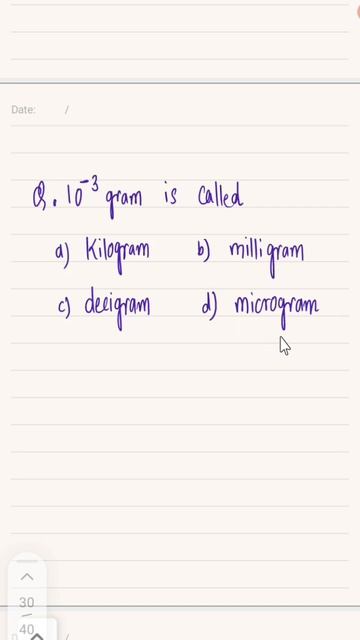 Date: /
Q. 10⁻³ gram is called
a) Kilogram b) milligram
c) decigram d) microgram
30
40
/